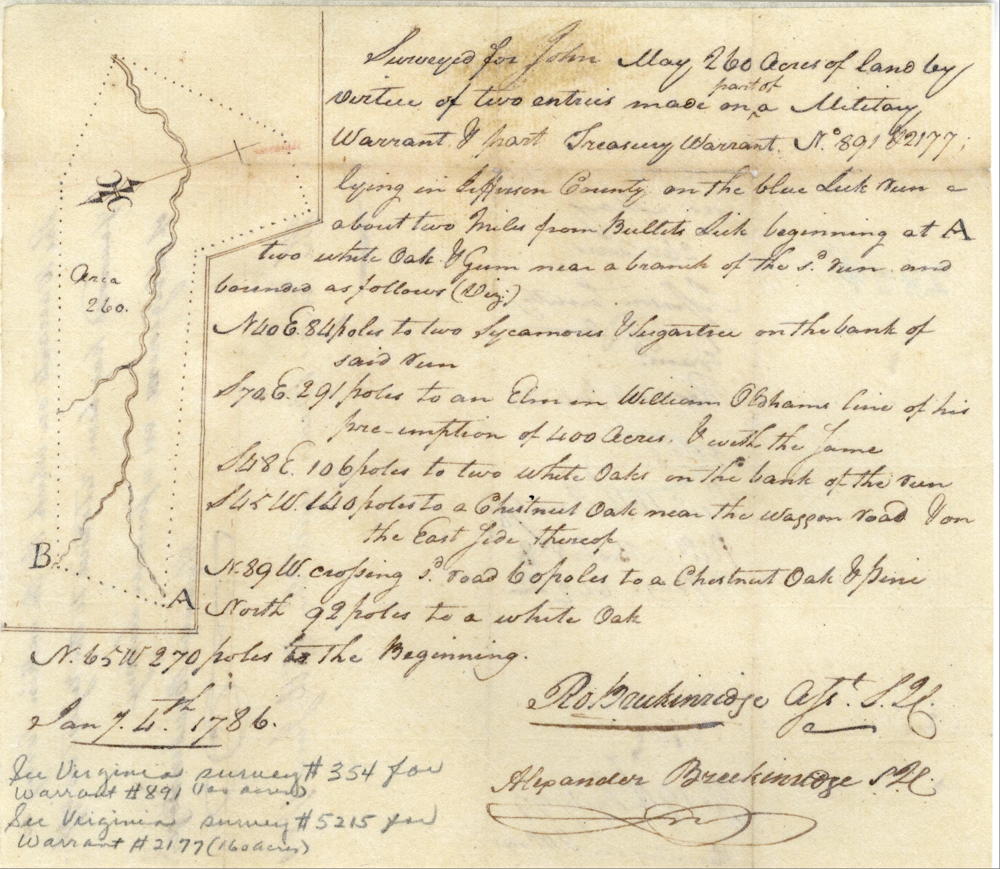 Surveyed for John May 260 Acres of land by
virtue of two entries made on part of a Military
Warrant & part Treasury Warrant Nº 891 & 2177;
lying in Jefferson County on the blue Lick run
about two Miles from Bullits Lick beginning at A
two white Oak & Gum near a branch of the sd. run and
bounded as follows (Viz:)
N40E. 84 poles to two Sycamores & Sugartree on the bank of
said run
S70.E. 291 poles to an Elm in William Oldhams line of his
pre-emption of 400 Acres. & with the same
S48E. 106 poles to two white Oaks on the bank of the run
S45W. 140 poles to a Chestnut Oak near the Waggon road & on
the East Side thereof
N.89W. crossing sd. road 60 poles to a Chestnut Oak & pine
North 92 poles to a white Oak
N.65W 270 poles to the Beginning.
Jany. 4th. 1786.
Ro. Breckinridge Asst. S.J.C.
Alexander Breckinridge S.J.C.
Area
260.
B
A
See Virginia survey #354 for
Warrant #891 (100 acres)
See Virginia survey #5215 for
Warrant #2177 (160 acres)